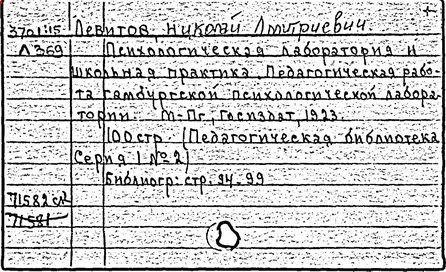 3701:15 Левитов, Николай Дмитриевич.
Л 369 Психологическая лаборатория и
школьная практика. Педагогическая рабо-
та гамбургской психологической лабора-
тории. М-Пг, Госиздат, 1923.
100 стр. (Педагогическая библиотека
Серия 1 № 2)
Библиогр: стр. 94-99
71582 ск
71581